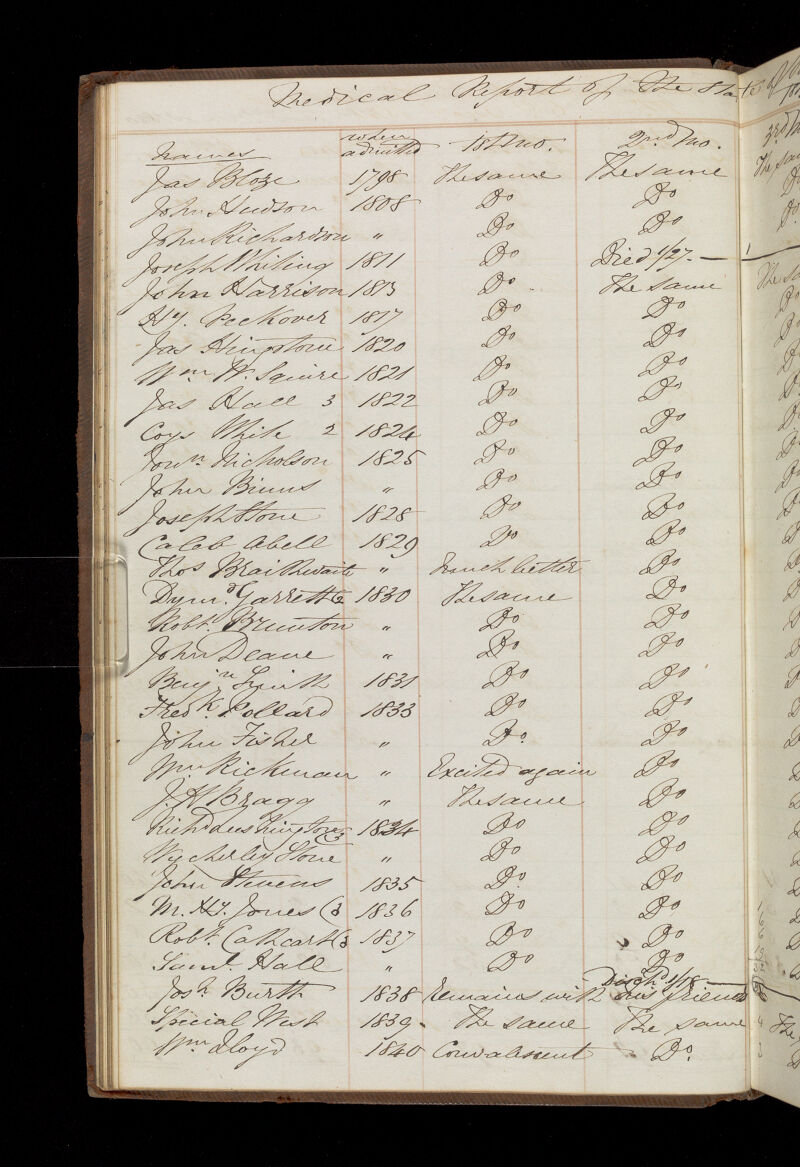 Medical Report of The Sta
names when admitted 1st mo. 2nd mo.
Jas Bloze 1798 The same The same
John Hudson 1808 Do Do
John Richardson " Do Do
Joseph Whiting 1811 Do Died 1/27.
John Harrison 1813 Do The same
Hy. Peckover 1817 Do Do
Jas Hingstone 1820 Do Do
Wm W. Squire 1821 Do Do
Jas Hall 3 1822 Do Do
White 2 1824 Do Do
Nicholson 1825 Do Do
John Binns " Do Do
Joseph Stone 1828 Do Do
Caleb Abell 1829 Do Do
Thos Braithwaite " Much better Do
Dymd. Garrett 2 1830 The same Do
Robt. Brunton " Do Do
John Deane " Do Do
Benjn Smith 1831 Do Do
Fredk. Pollard 1833 Do Do
John Fisher " Do. Do
Wm Rickman " Excited again Do
J. H. Bragg " The same Do
1834 Do Do
Wycherley Stone " Do Do
John Stevens 1835 Do Do
M. Hy. Jones (3 1836 Do Do
Robt. Cathcart (3 1837 Do Do
Saml. Hall " Do Do
Dischd 1/18
Josh Burtt 1838 Remains with his friends
Special West 1839. The same The same
Wm Lloyd 1840 Convalescent Do.